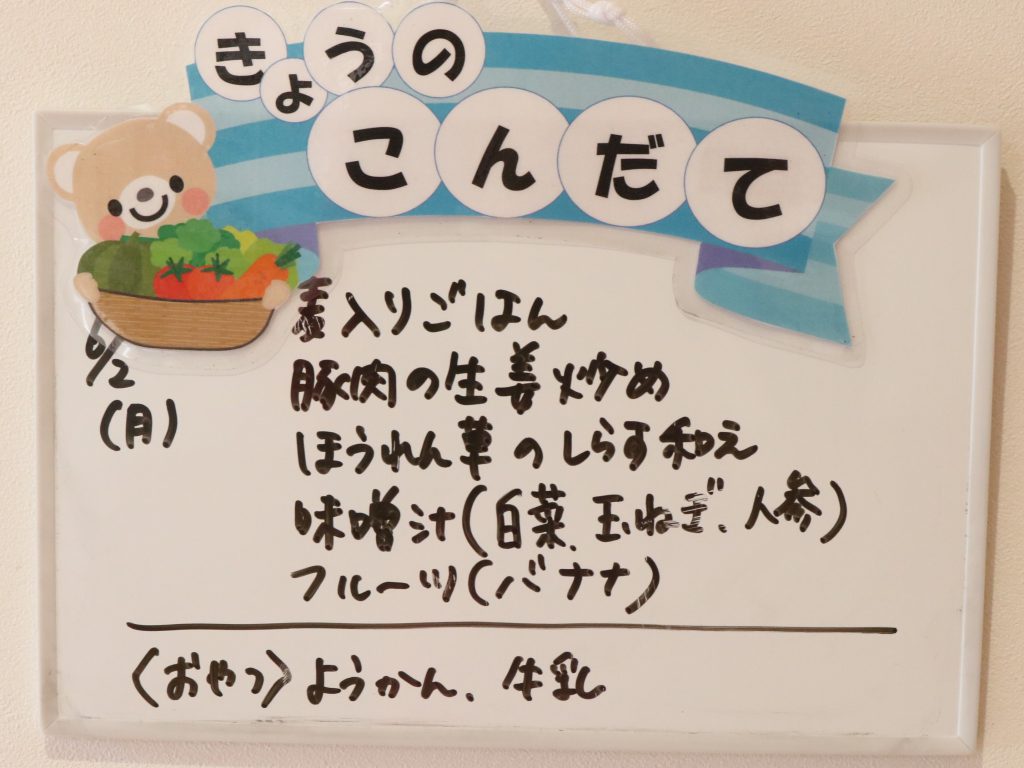 きょうの
こんだて
6/2
(月)
麦入りごはん
豚肉の生姜炒め
ほうれん草のしらす和え
味噌汁(白菜、玉ねぎ、人参)
フルーツ(バナナ)
〈おやつ〉ようかん、牛乳